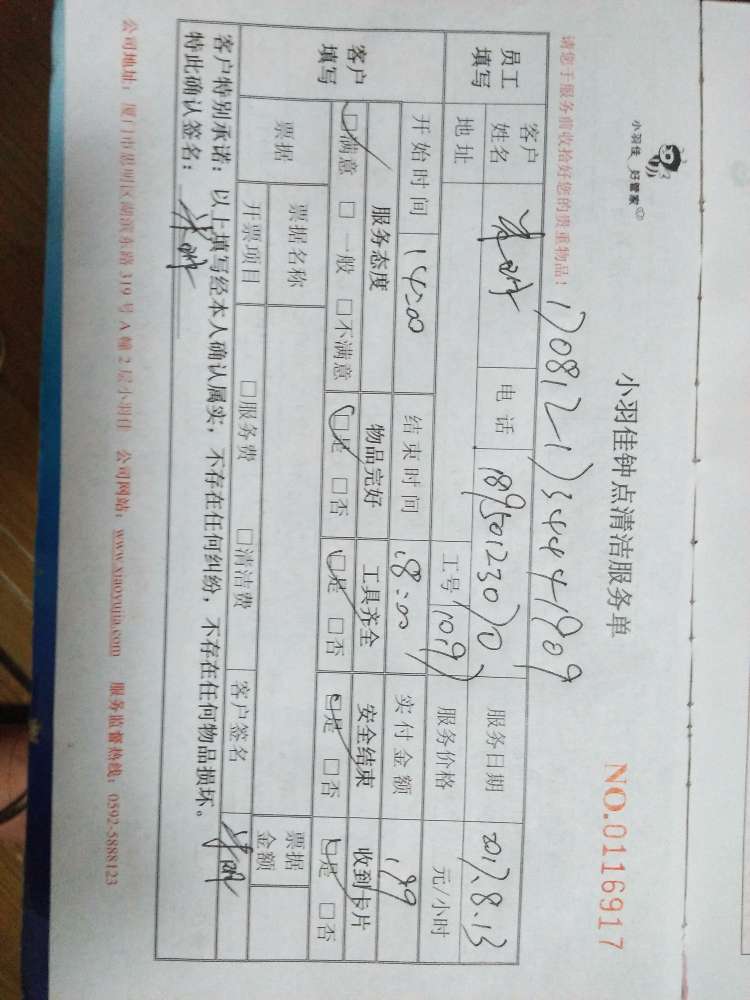 小羽佳 好管家
小羽佳钟点清洁服务单
NO.0116917
请您于服务前收拾好您的贵重物品！
员工填写 客户姓名 电话 18950123070 服务日期 2017.8.13
地址 工号 服务价格 元/小时
开始时间 14:00 结束时间 18:00 实付金额 199
客户填写 服务态度 物品完好 工具齐全 安全结束 收到卡片
☑满意 □一般 □不满意 ☑是 □否 ☑是 □否 ☑是 □否 ☑是 □否
票据 票据名称 票据金额
开票项目 □服务费 □清洁费 客户签名
客户特别承诺：以上填写经本人确认属实，不存在任何纠纷，不存在任何物品损坏。
特此确认签名：
公司地址：厦门市思明区湖滨东路 319 号 A 幢 2 层小羽佳 公司网站：www.xiaoyujia.com 服务监督热线：0592-5888123